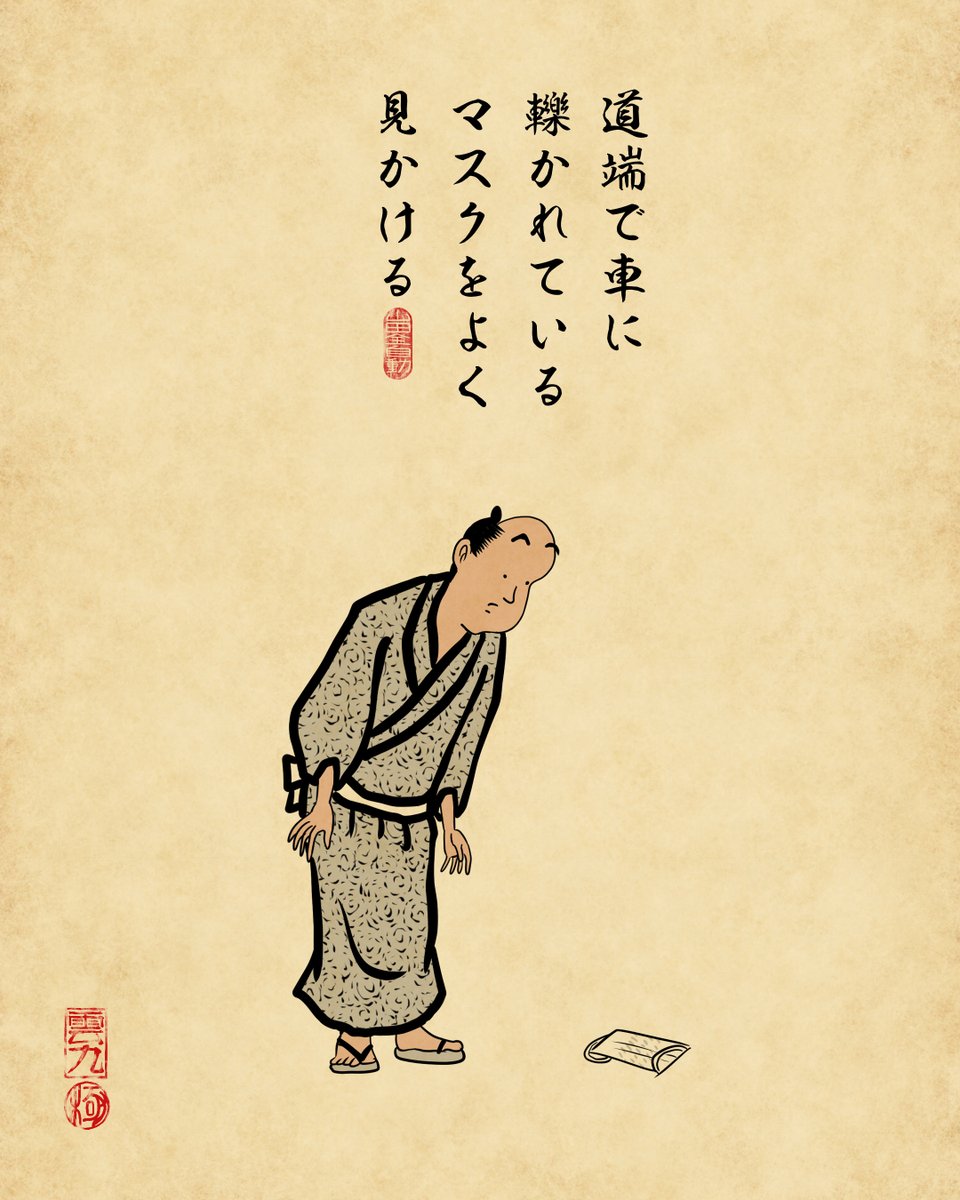 道端で車に
轢かれている
マスクをよく
見かける
雲九